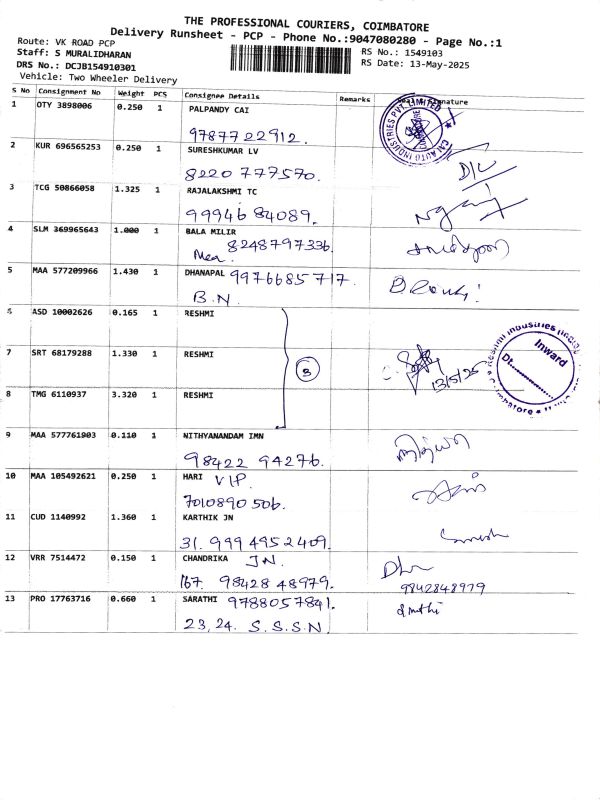 THE PROFESSIONAL COURIERS, COIMBATORE
Delivery Runsheet - PCP - Phone No.:9047080280 - Page No.:1
Route: VK ROAD PCP
Staff: S MURALIDHARAN
DRS No.: DCJB154910301
Vehicle: Two Wheeler Delivery
RS No.: 1549103
RS Date: 13-May-2025
S No Consignment No Weight PCS Consignee Details Remarks Signature
1 OTY 3898006 0.250 1 PALPANDY CAI
9787722912.
CAI AUTO INDUSTRIES PVT. LIMITED
2 KUR 696565253 0.250 1 SURESHKUMAR LV
8220 777570.
3 TCG 50866058 1.325 1 RAJALAKSHMI TC
99946 84089.
4 SLM 369965643 1.000 1 BALA MILIR
8248797336.
5 MAA 577209966 1.430 1 DHANAPAL 9976685717.
B.N.
6 ASD 10002626 0.165 1 RESHMI
7 SRT 68179288 1.330 1 RESHMI
3
13/5/25
Inward
Dt.
Coimbatore
8 TMG 6110937 3.320 1 RESHMI
9 MAA 577761903 0.110 1 NITHYANANDAM IMN
98422 94276.
10 MAA 105492621 0.250 1 HARI VIP.
7010890 506.
11 CUD 1140992 1.360 1 KARTHIK JN
31. 9994952409.
12 VRR 7514472 0.150 1 CHANDRIKA JN.
167. 98428 48979.
9842848979
13 PRO 17763716 0.660 1 SARATHI 9788057841.
23, 24. S.S.S.N.